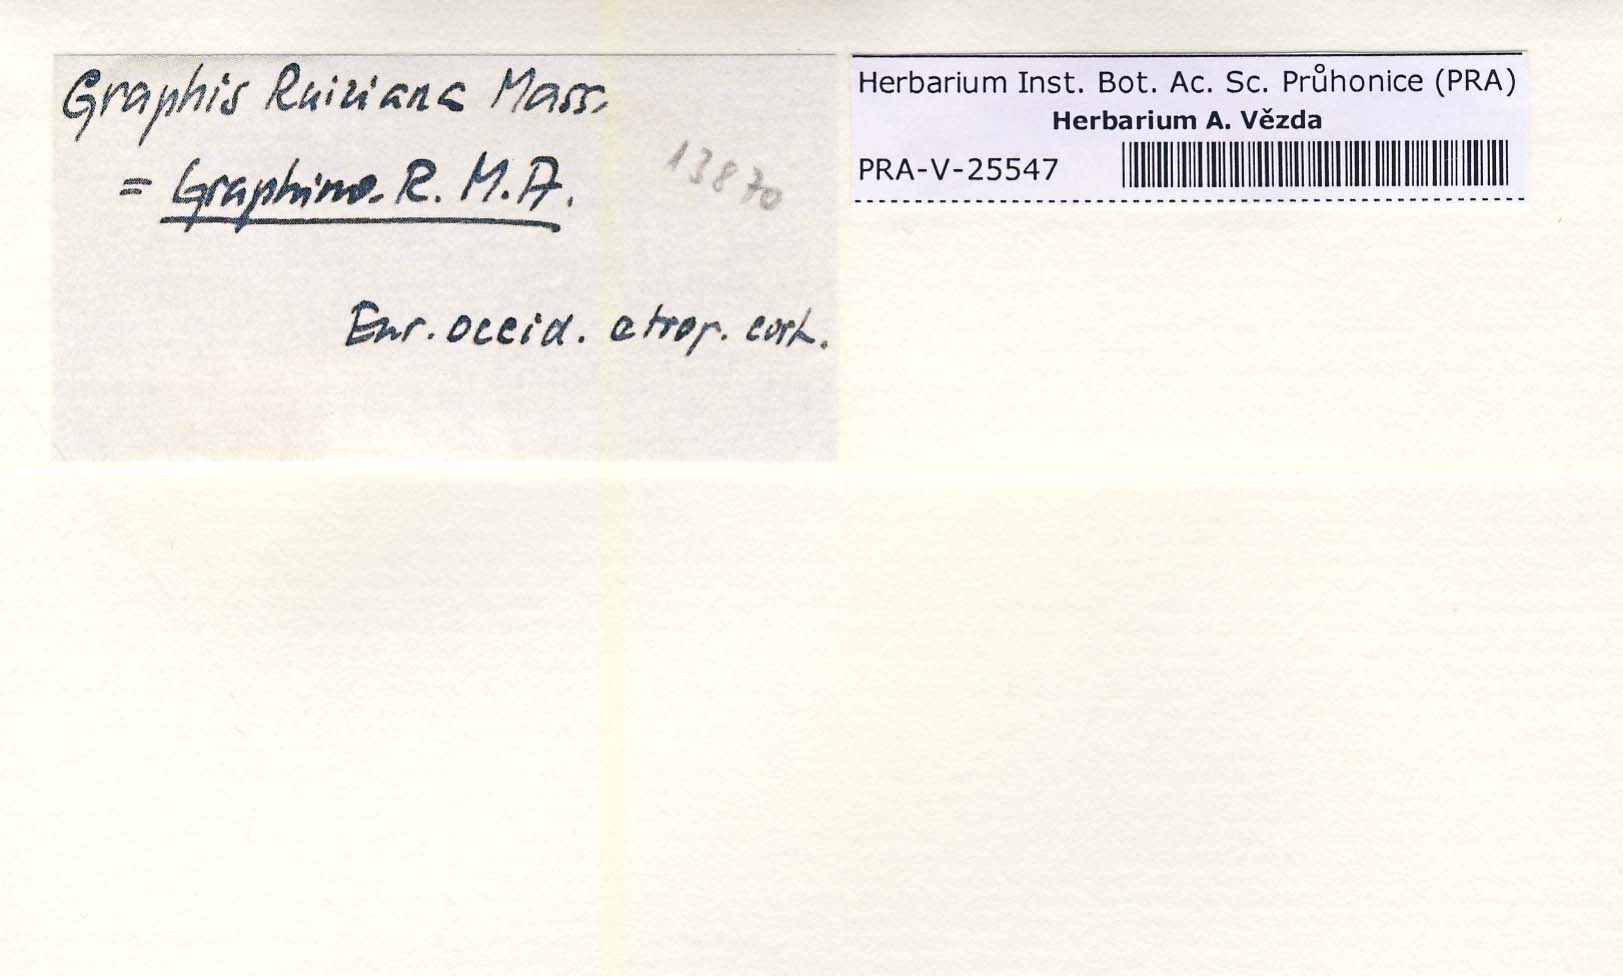 Graphis Ruiziana Mass.
= Graphina R. M.A.
13870
Eur. occid. etrop. cort.
Herbarium Inst. Bot. Ac. Sc. Průhonice (PRA)
Herbarium A. Vězda
PRA-V-25547